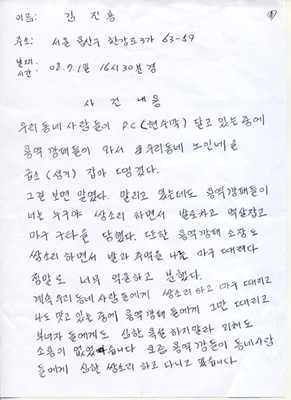 ①
이름: 김 진 홍
주소: 서울 용산구 한강로3가 63-59
발생
시간: 08.7.1일 16시 30분경
사 건 내 용
우리동네사람들이 P.C(현수막) 달고 있는 중에
용역깡패들이 와서 우리동네 노인네를
급소(성기) 잡아 땡겼다.
그걸 보면 말렸다. 말리고 있는데도 용역깡패들이
너는 누구야 쌍소리 하면서 발로차고 멱살잡고
마구 구타을 당했다. 또한 용역깡패 소장도
쌍소리 하면서 발과 주먹을 나를 마구 때려다
정말로 너무 억울하고 분했다.
계속 우리동네 사람들에게 쌍소리하고 마구 때리고
나도 맞고 있는 중에 용역깡패들에게 그만 때리고
부녀자들에게도 심한 욕설 하지말라 되려도
소용이 없었습니다 요즘 용역깡들이 동네사람
들에게 심한 쌍소리 하고 다니고 했습니다.